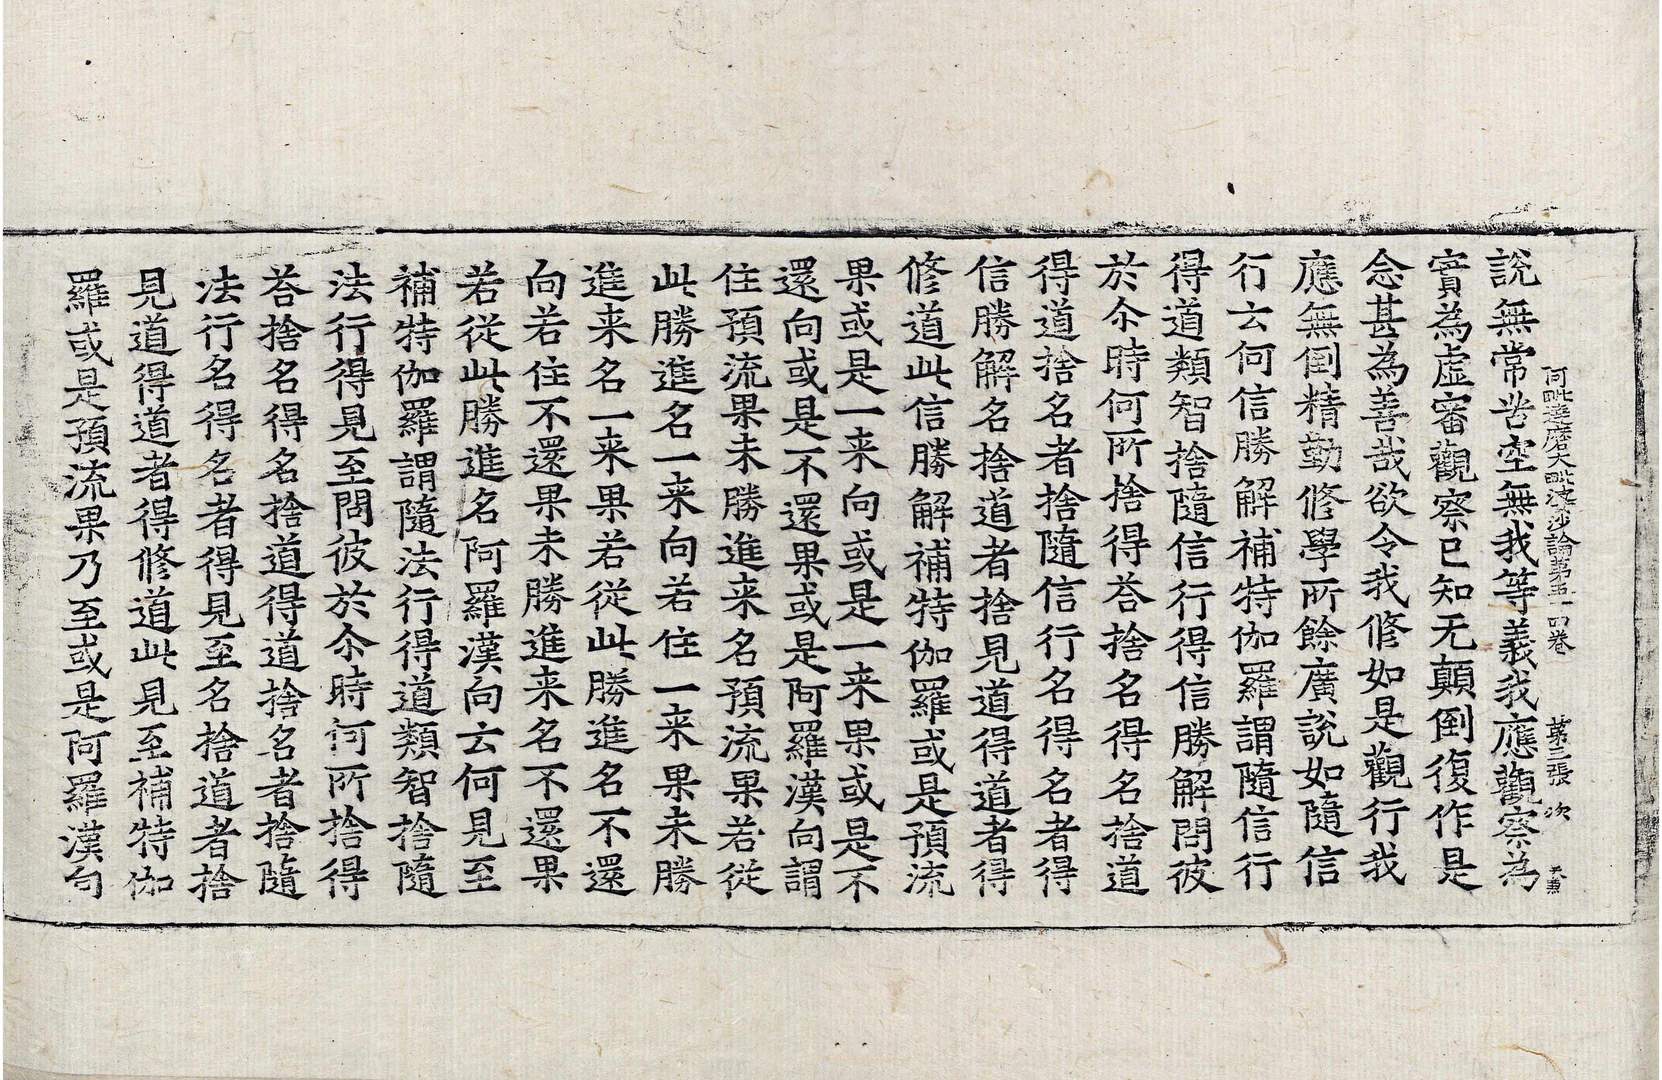 阿毗達磨大毗婆沙論第五十四卷 第三張 次
說無常苦空無我等義我應觀察為
實為虛審觀察已知无顛倒復作是
念甚為善哉欲令我修如是觀行我
應無倒精勤修學所餘廣說如隨信
行云何信勝解補特伽羅謂隨信行
得道類智捨隨信行得信勝解問彼
於尒時何所捨得荅捨名得名捨道
得道捨名者捨隨信行名得名者得
信勝解名捨道者捨見道得道者得
修道此信勝解補特伽羅或是預流
果或是一来向或是一来果或是不
還向或是不還果或是阿羅漢向謂
住預流果未勝進来名預流果若從
此勝進名一来向若住一来果未勝
進来名一来果若從此勝進名不還
向若住不還果未勝進来名不還果
若從此勝進名阿羅漢向云何見至
補特伽羅謂隨法行得道類智捨隨
法行得見至問彼於尒時何所捨得
荅捨名得名捨道得道捨名者捨隨
法行名得名者得見至名捨道者捨
見道得道者得修道此見至補特伽
羅或是預流果乃至或是阿羅漢向